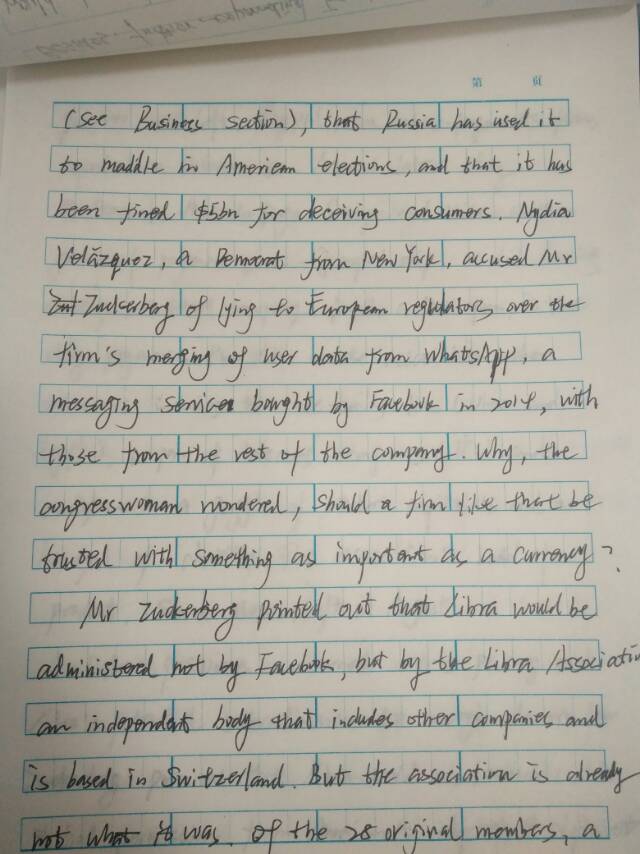 第 页
(see Business section), that Russia has used it
to maddle in American elections, and that it has
been fined $5bn for deceiving consumers. Nydia
Velázquez, a Democrat from New York, accused Mr
Zuckerberg of lying to European regulators over the
firm's merging of user data from WhatsApp, a
messaging service bought by Facebook in 2014, with
those from the rest of the company. Why, the
congresswoman wondered, should a firm like that be
trusted with something as important as a currency?
Mr Zuckerberg pointed out that Libra would be
administered not by Facebook, but by the Libra Association
an independent body that includes other companies and
is based in Switzerland. But the association is already
not what it was. Of the 28 original members, a